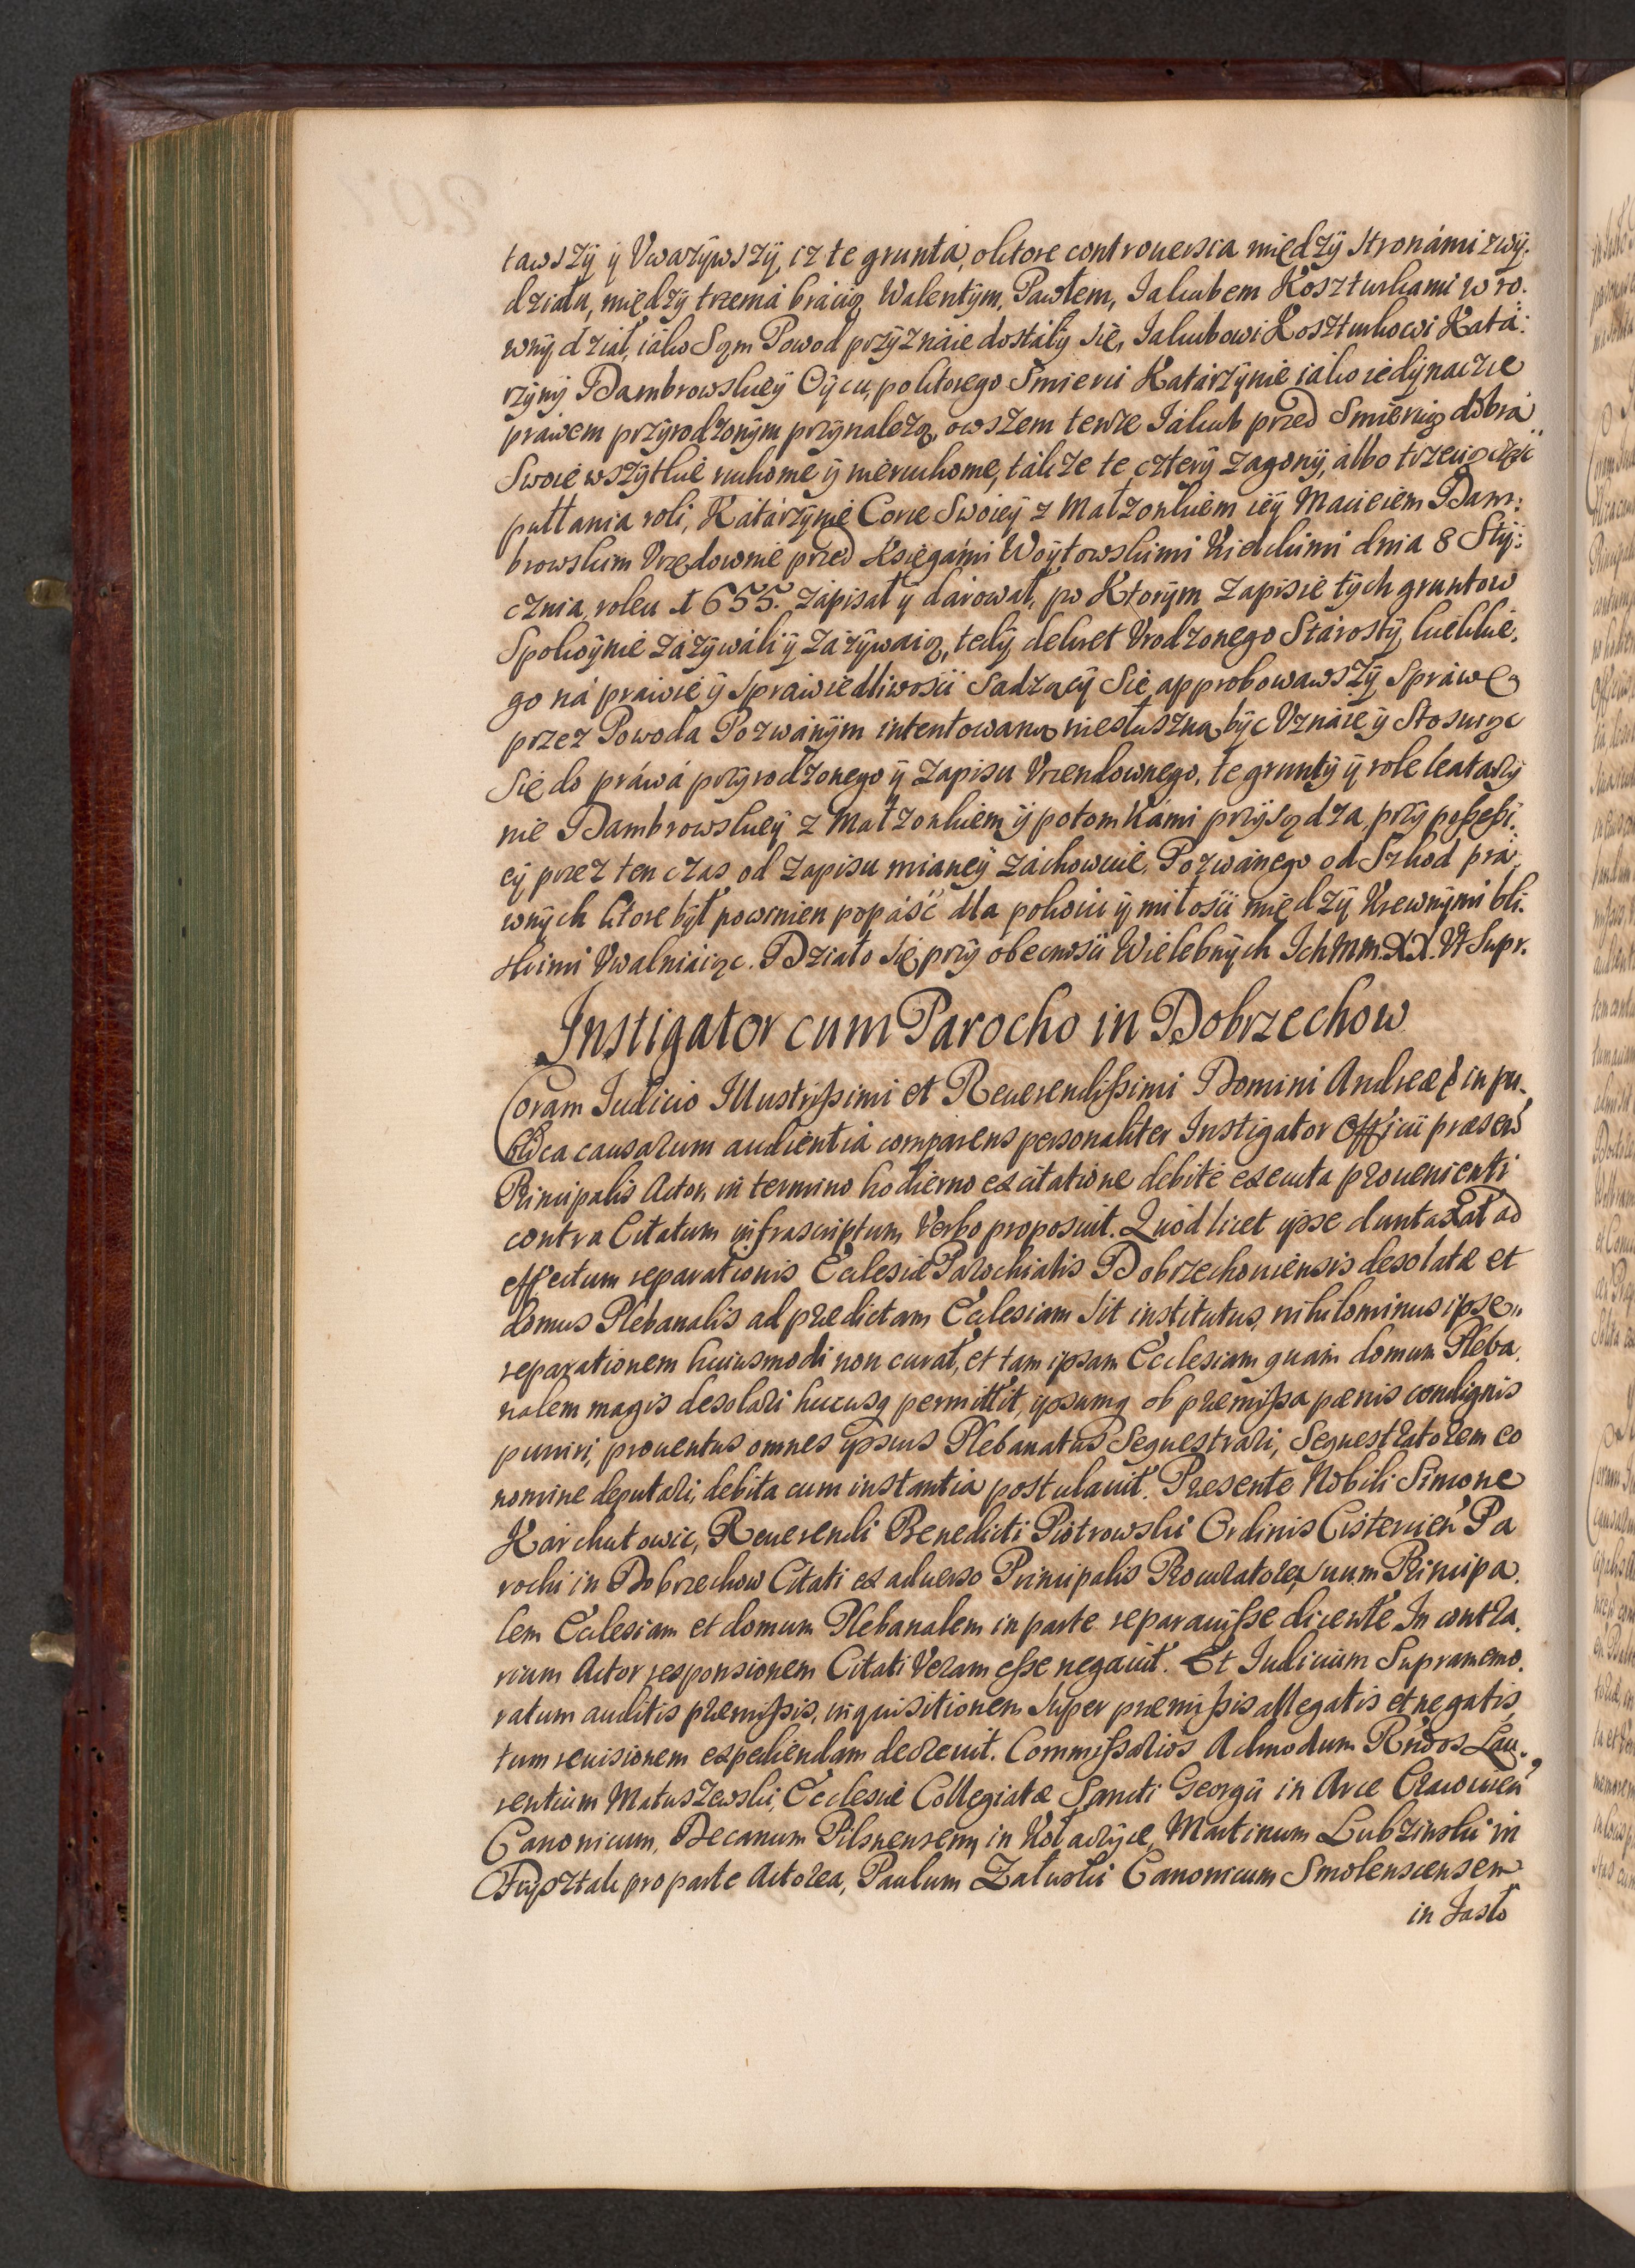 tawszÿ ÿ Vwazÿwszÿ, iz te grunta, oktore controuersia międzÿ stronámi zwÿ:
działa, międzÿ trzemá brácią Walentÿm, Pawłem, Iakubem Koszturkami w ro:
wnÿ dział, iáko Sąm Powod przÿznáie dostałÿ się, Iakubowi Koszturkowi Katá:
rzÿnÿ Dambrowskieÿ Oÿcu, poktorego Smierci Katárzÿnie iáko iedÿnaczce
práwem przÿrodzonÿm przÿnależą, owszem tenze Iákub przed Smiercią dobrá
Swoie wszÿtkie ruchome ÿ nieruchome, tákze te czterÿ zagonÿ, álbo trzecią częsc
pułłania roli, Katárzÿnie Corce Swoieÿ z Małzonkiem ieÿ Macieiem Dam:
browskim Vrzędownie przed Księgámi Woÿtowskimi Kieckimi dnia 8 Stÿ:
cznia, roku 1655. zápisał ÿ dárował, po Ktorÿm zapisie tÿch gruntow
Spokoÿnie záżÿwáli ÿ zázÿwaią, tedÿ dekret Vrodzonego Stárostÿ kieckie,
go ná práwie ÿ spráwiedliwosci Sadzącÿ Się approbowawszÿ Spráwę
przez Powoda Pozwánÿm intentowaną niesłuszną bÿc Vznáie ÿ Stosuiąc
Się do práwá przÿrodzonego ÿ zapisu Vrzendownego, te gruntÿ ÿ role Katarzÿ
nie Dambrowskieÿ z Małzonkiem ÿ potomkámi przÿsądza, przÿ possessi,
cÿ przez ten czas od zapisu mianeÿ záchowuie, Pozwánego od Szkod prá,
wnÿch ktore bÿł powinien popáść dla pokoiu ÿ miłosci międzÿ Krewnÿmi bli:
skimi Vwalniáiąc. Działo się przÿ obecnosci Wielebnÿch Ichmm. XX. Vt Supr.
Instigator cum Parocho in Dobrzechow
Coram Iudicio Illustrissimi et Reuerendissimi Domini Andreæ & in pu,
blica causarum audientia comparens personaliter Instigator Officii præsens
Principalis Actor, in termino hodierno ex citatione debite executa prouenienti
contra Citatum infrascriptum, Verbo proposuit. Quod licet ipse duntaxat ad
effectum reparationis Ecclesiæ Parochialis Dobrzechouiensis desolatæ et
domus Plebanalis ad prædictam Ecclesiam sit institutus, nihilominus ipse
reparationem huiusmodi non curat, et tam ipsam Ecclesiam quam domum Pleba,
nalem magis desolari hucusq permittit, ipsumq ob præmissa pænis condignis
puniri, prouentus omnes ipsius Plebanatus Sequestrari, Sequestratorem eo
nomine deputari, debita cum instantia postulauit. Præsente Nobili Simone
Karchutowic, Reuerendi Benedicti Piotrowski Ordinis Cistercień Pa
rochi in Dobrzechow Citati ex aduerso Principalis Procuratore, suum Principa,
lem Ecclesiam et domum Plebanalem in parte reparauisse dicente. In contra,
rium Actor responsionem Citati Veram esse negauit. Et Iudicium Supramemo,
ratum auditis præmissis, inquisitionem super præmissis allegatis et negatis,
tum reuisionem expediendam decreuit. Commissarios Admodum Rńdos Lau,
rentium Matuszewski, Ecclesiæ Collegiatæ Sancti Georgii in Arce Cracouień
Canonicum, Decanum Pilsnensem, in Kołaczÿce, Martinum Lubzinski in
Frÿsztak pro parte Actorea, Paulum Załuski Canonicum Smolenscensem
in Jasło